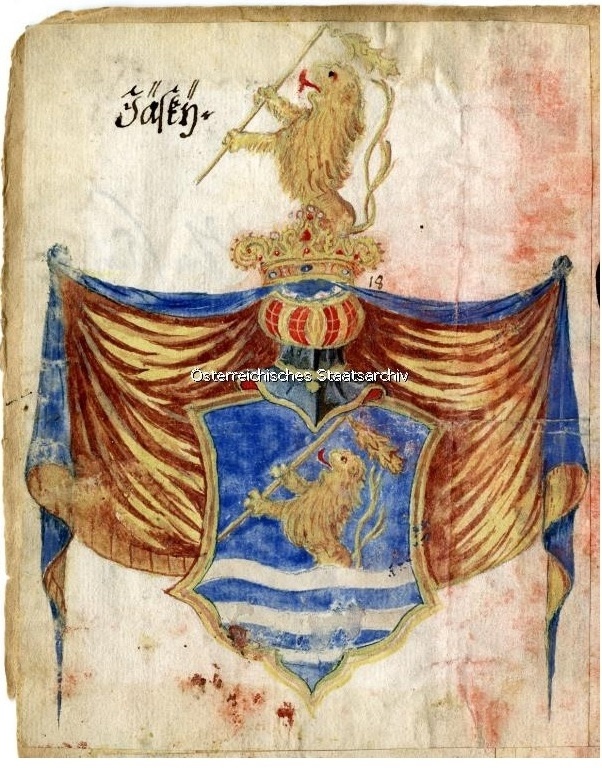 Jäskÿ
18
Österreichisches Staatsarchiv